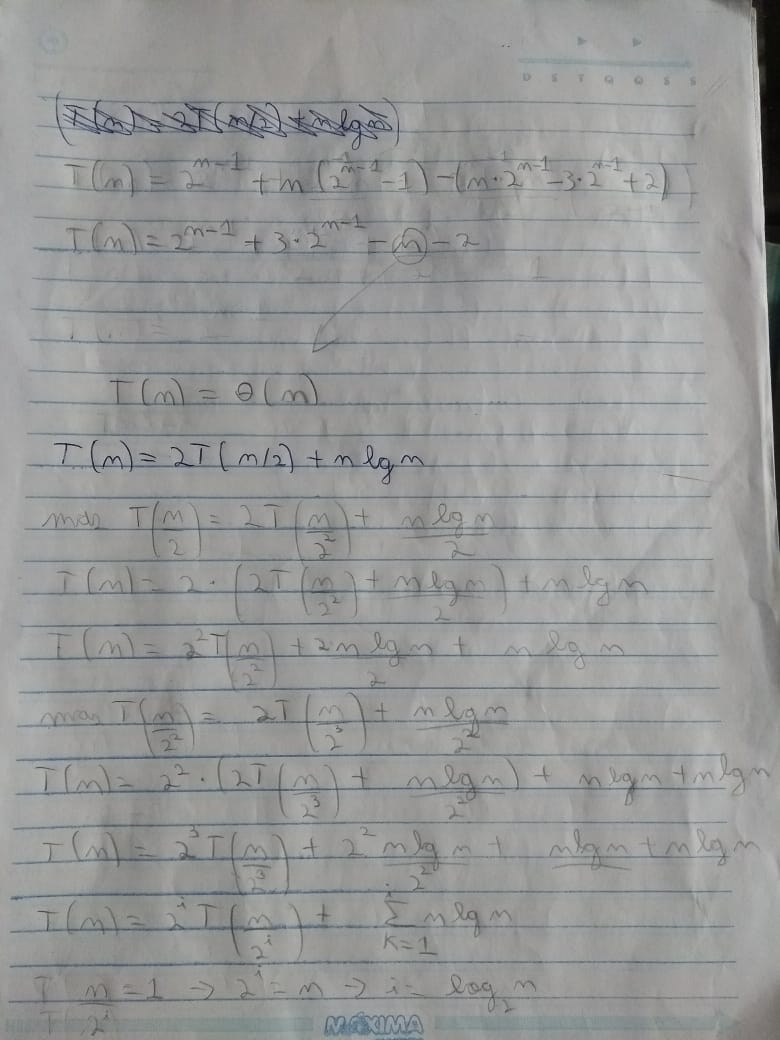 D S T Q Q S S
(T(n) = 2T(n/2) + n lg n)
T(n) = 2^{n-1} + n (2^{n-1} - 1) - (n·2^{n-1} - 3·2^{n-1} + 2)
T(n) = 2^{n-1} + 3·2^{n-1} - n - 2
T(n) = Θ(n)
T(n) = 2T(n/2) + n lg n
mas T(n/2) = 2T(n/2^2) + n lg n/2
T(n) = 2·(2T(n/2^2) + n lg n/2) + n lg n
T(n) = 2^2 T(n/2^2) + 2n lg n/2 + n lg n
mas T(n/2^2) = 2T(n/2^3) + n lg n/2^2
T(n) = 2^2·(2T(n/2^3) + n lg n/2^2) + n lg n + n lg n
T(n) = 2^3 T(n/2^3) + 2^2 n lg n/2^2 + n lg n + n lg n
T(n) = 2^i T(n/2^i) + Σ_{K=1}^{i} n lg n
n/2^i = 1 → 2^i = n → i = log_2 n
MÁXIMA